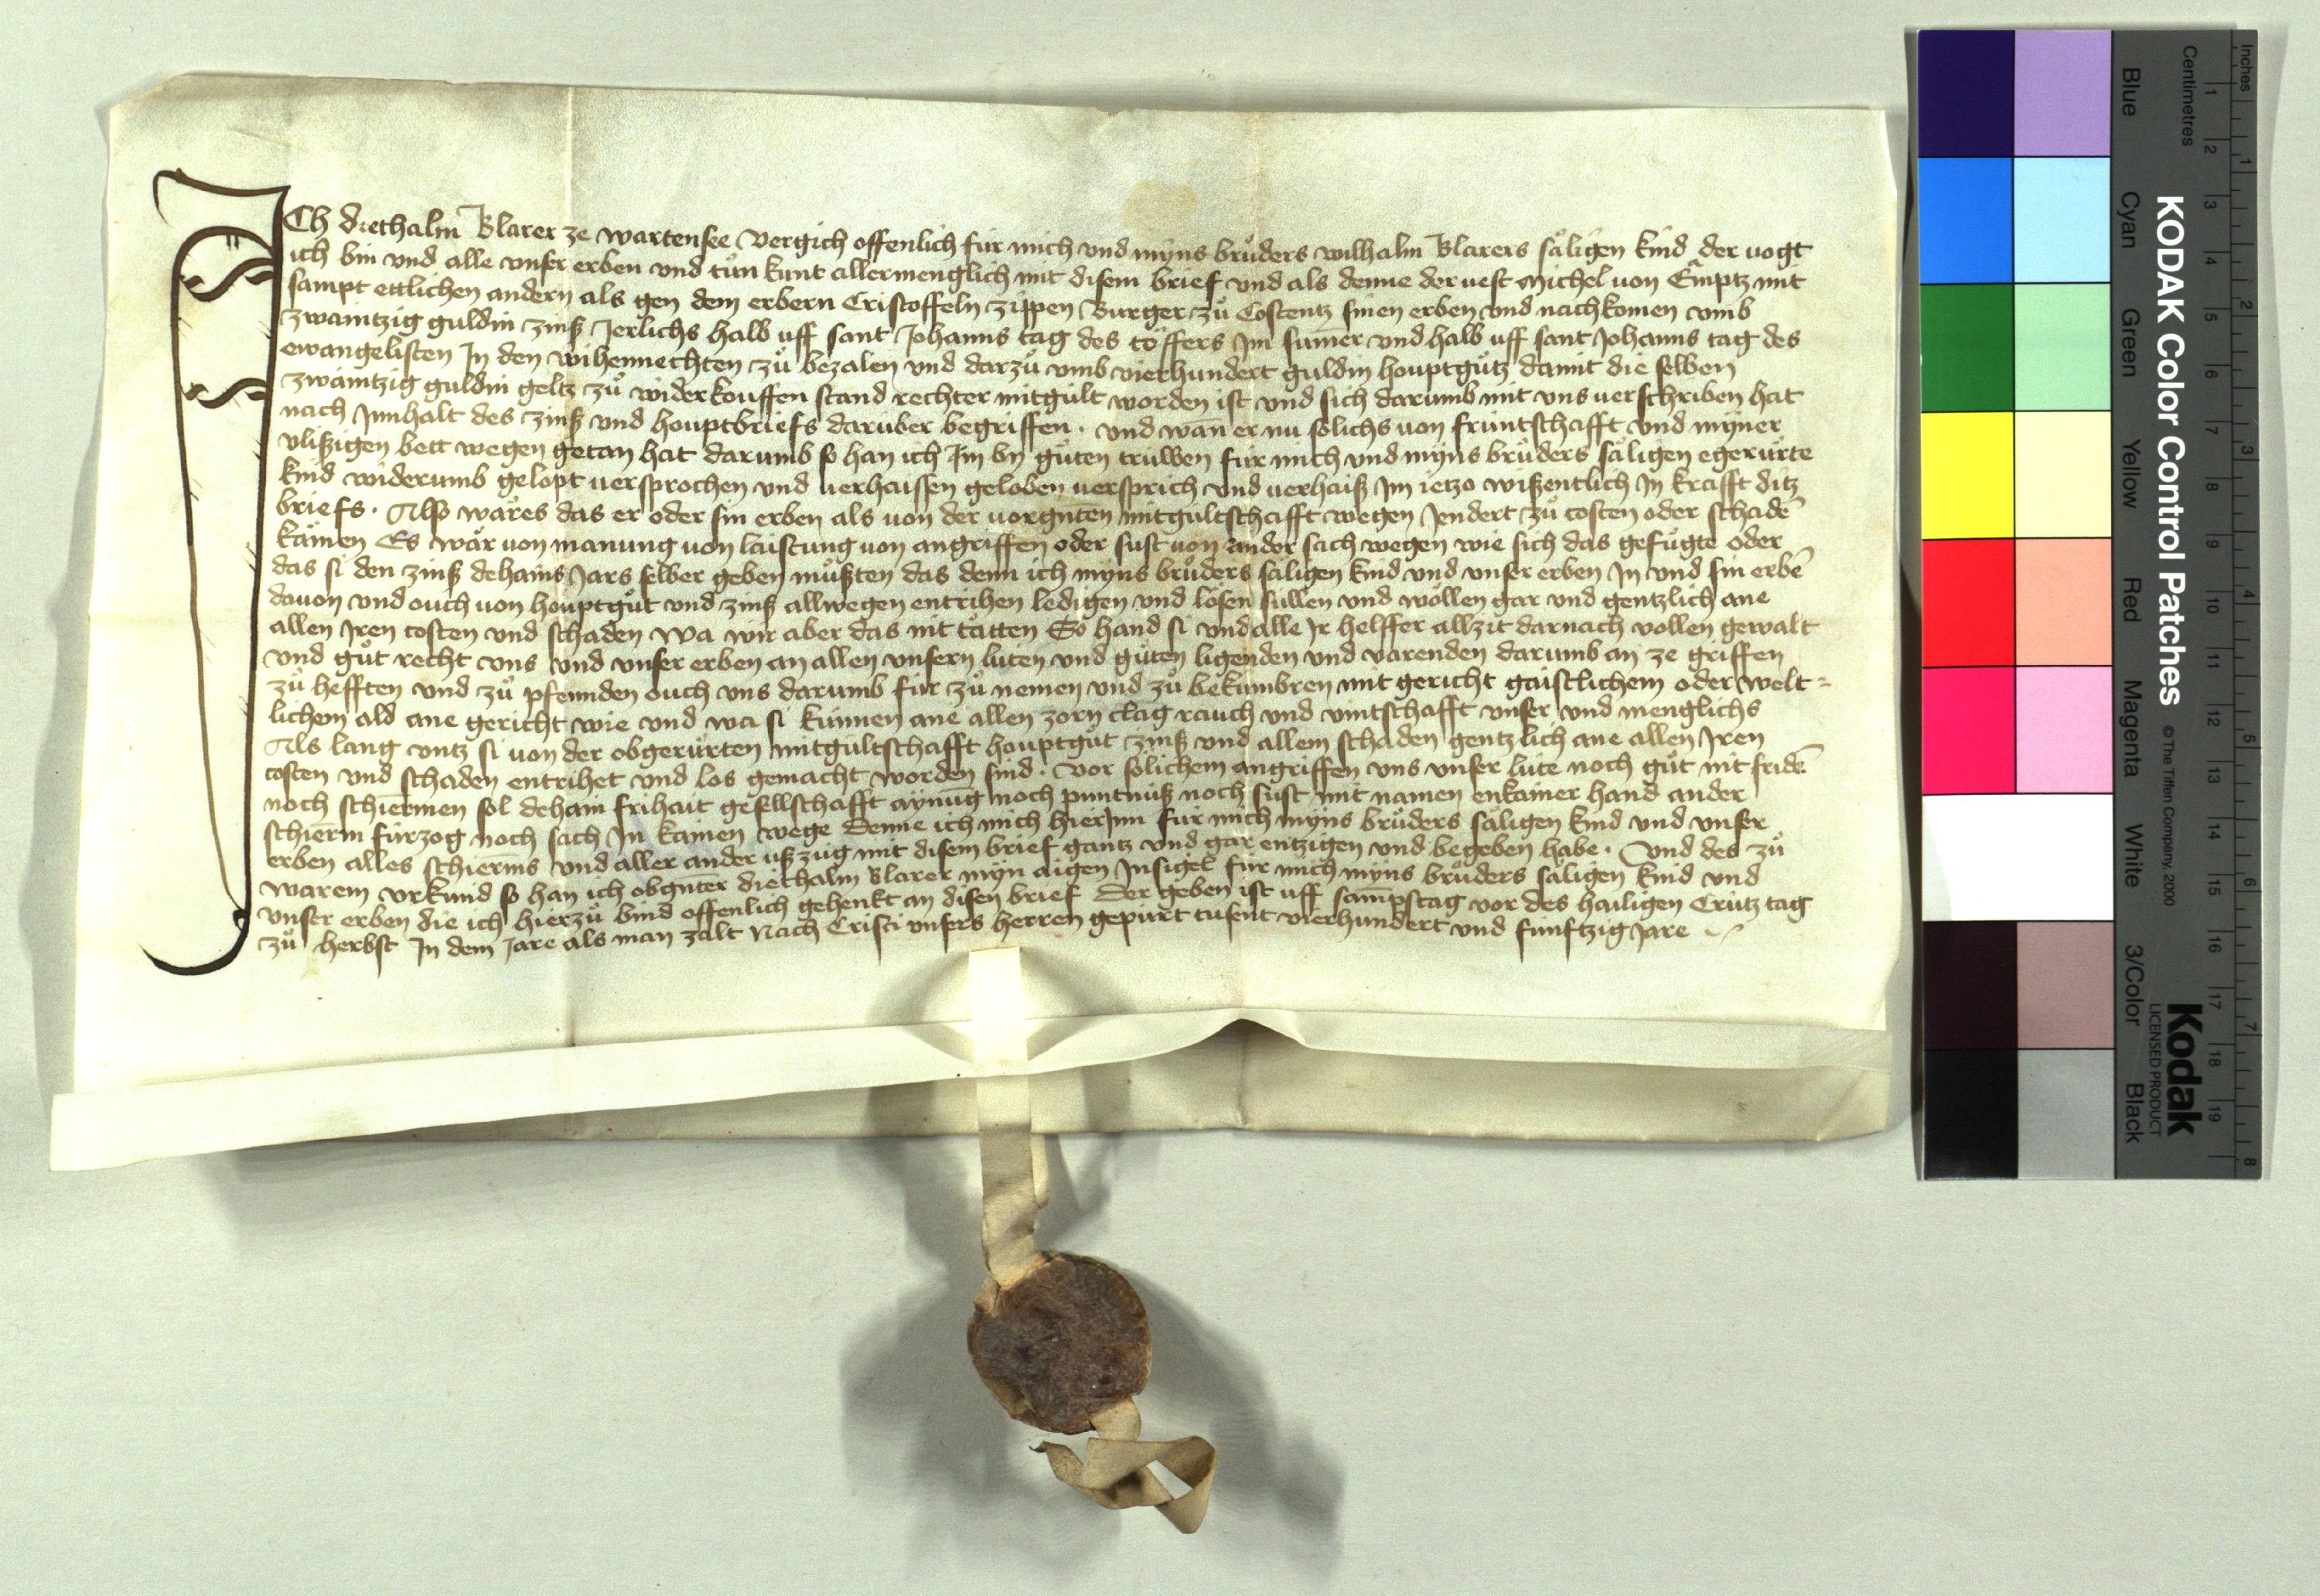 ICh diethalm Blarer ze wartensee Vergich offenlich für mich vnd myns brůders wilhalm Blarers såligen kind der uogt
ich bin vnd alle vnser erben vnd tůn kunt allermenglich mit disem brief vnd als denne der uest Michel uon Emptz mit
sampt ettlichen andern als gen dem erbern Cristoffeln zippen Burger zů Costentz sinen erben vnd nachkomen vmb
zwaintzig guldin zinß Jerlichs halb uff sant Johanns tag des töffers Jm sum̄er vnd halb uff sant Johanns tag des
ewangelisten Jn den wihennechten zů bezalen vnd darzů vmb vierhundert guldin houptgůtz damit die selben
zwaintzig guldin geltz zů widerkouffen stand rechter mitgült worden ist vnd sich darumb mit vns uerschriben hat
nach Jnnhalt des zinß vnd houptbriefs darüber begriffen . vnd wan er nu sölichs uon früntschafft vnd myner
vlißigen bett wegen getan hat darumb so han ich Jm by gůten trüwen für mich vnd myns brůders såligen egerürte
kind widerumb gelopt uersprochen vnd uerhaissen geloben uersprich vnd uerhaiß Jm ietzo wißentlich Jn krafft ditz
briefs . Also wåres das er oder sin erben als uon der uorgn̄ten mitgültschafft wegen Jendert zů costen oder schadē
kåmen Es wår uon manung uon laistung uon angriffen oder sust uon ander sach wegen wie sich das gefůgte oder
das si den zinß dehains Jars selber geben můßten das denn ich myns brůders såligen kind vnd vnser erben Jn vnd sin erbē
dauon vnd ouch uon houptgůt vnd zinß allwegen entrihen ledigen vnd lösen süllen vnd wöllen gar vnd gentzlich ane
allen Jren costen vnd schaden Wa wir aber das nit tåtten So hand si vnd alle Jr helffer allzit darnach vollen gewalt
vnd gůt recht vns vnd vnser erben an allen vnsern lüten vnd gůten ligenden vnd varenden darumb an ze griffen
zů hefften vnd zů pfennden ouch vns darumb für zů nemen vnd zů bekümbren mit gericht gaistlichem oder welt=
lichem ald ane gericht wie vnd wa si künnen ane allen zorn clag rauch vnd vintschafft vnser vnd menglichs
Als lang vntz si uon der obgerürten mitgültschafft houptgůt zinß vnd allem schaden gentzlich ane allen Jren
costen vnd schaden entrihet vnd los gemacht worden sind . Vor sölichem angriffen vns vnser lüte noch gůt nit fridē
noch schiermen sol dehain frihait gesellschafft aynūg noch puntnüß noch sust mit namen enkainer hand ander
schierm fürzog noch sach Jn kainen wege Denne ich mich hierJnn für mich myns brůders såligen kind vnd vnser
erben alles schierms vnd aller ander ußzüg mit disem brief gantz vnd gar entzigen vnd begeben habe . Vnd des zů
warem vrkund so han ich obgn̄ter diethalm Blarer myn aigen Jnsigel für mich myns brůders såligen kind vnd
vnser erben die ich hierzů bind offenlich gehenkt an disen brief Der geben ist uff sampstag vor des hailigen Crütz tag
zů herbst Jn dem Jare als man zalt Nach Cristi vnsers herren gepurt tusent vierhundert vnd fünftzig Jare
KODAK Color Control Patches © The Tiffen Company, 2000
Kodak
LICENSED PRODUCT
Blue Cyan Green Yellow Red Magenta White 3/Color Black
Centimetres 1 2 3 4 5 6 7 8 9 10 11 12 13 14 15 16 17 18 19
Inches 1 2 3 4 5 6 7 8